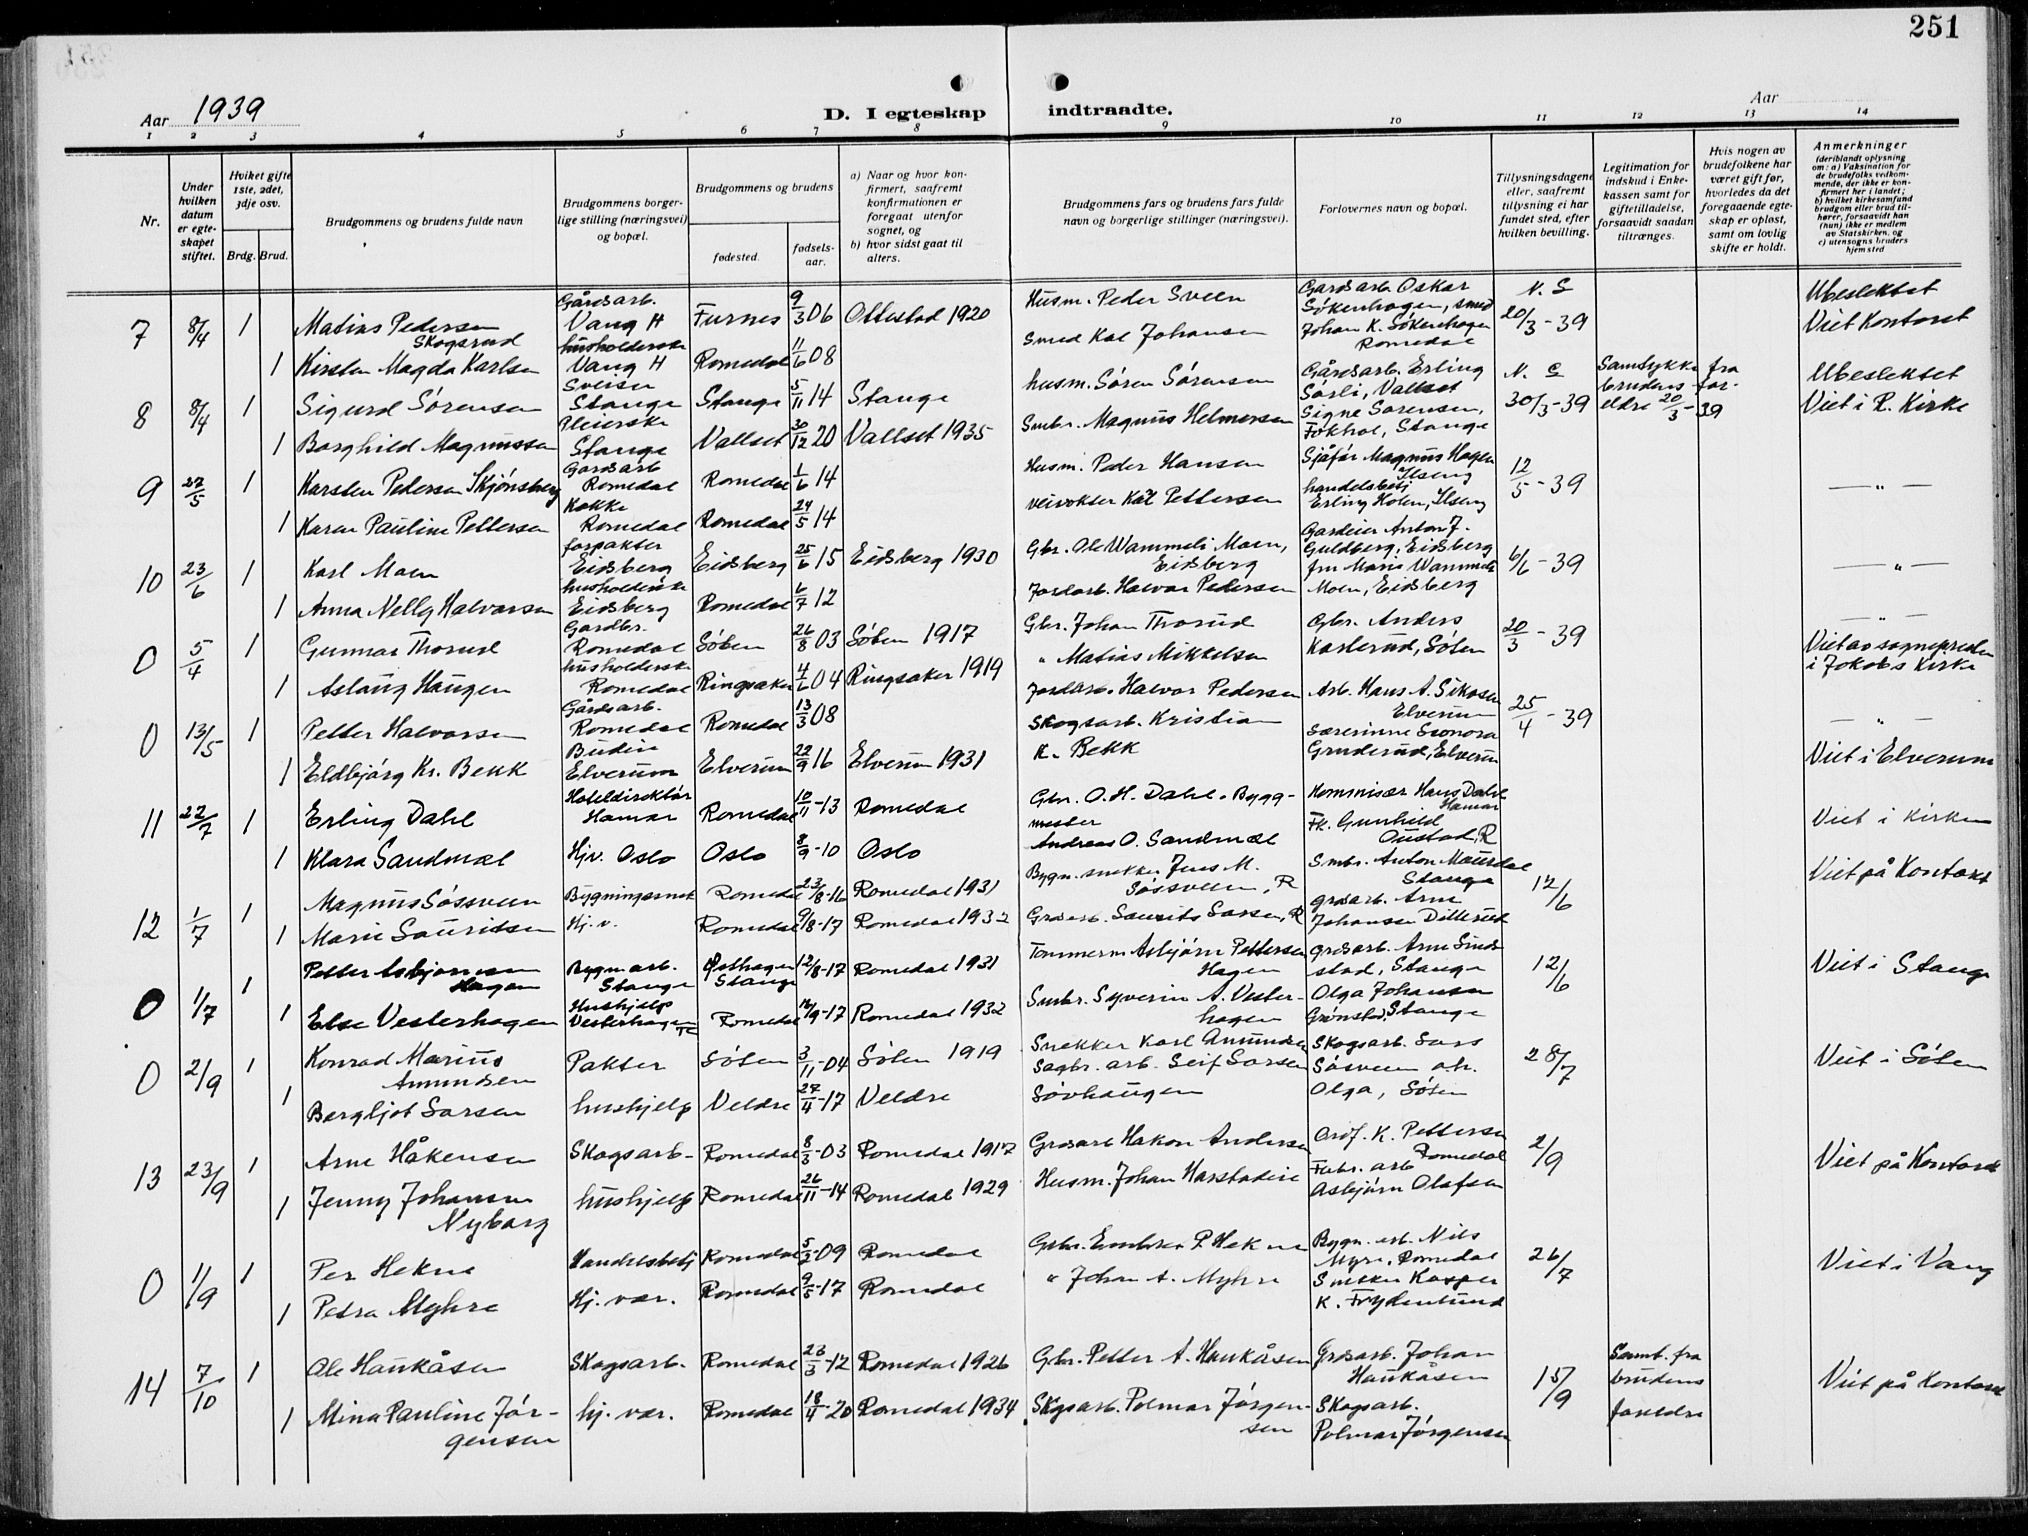 251
Aar 1939
D. I egteskap indtraadte.
Aar
1 2 3 4 5 6 7 8 9 10 11 12 13 14
Nr.
Under hvilken datum er egteskapet stiftet.
Hvilket gifte 1ste, 2det, 3dje osv.
Brdg. Brud.
Brudgommens og brudens fulde navn
Brudgommens borgerlige stilling (næringsvei) og bopæl.
Brudgommens og brudens
fødested.
fødselsaar.
a) Naar og hvor konfirmert, saafremt konfirmationen er foregaat utenfor sognet, og
b) hvor sidst gaat til alters.
Brudgommens fars og brudens fars fulde navn og borgerlige stillinger (næringsvei).
Forlovernes navn og bopæl.
Tillysningsdagene eller, saafremt tillysning ei har fundet sted, efter hvilken bevilling.
Legitimation for indskud i Enkekassen samt for giftetilladelse, forsaavidt saadan tiltrænges.
Hvis nogen av brudefolkene har været gift før, hvorledes da det foregaaende egteskap er opløst, samt om lovlig skifte er holdt.
Anmerkninger
(deriblandt oplysning om: a) Vaksination for de brudefolks vedkommende, der ikke er konfirmert her i landet; b) hvilket kirkesamfund brudgom eller brud tilhører, forsaavidt han (hun) ikke er medlem av Statskirken, og c) utensogns bruders hjemsted
7 8/4 1 Matias Pedersen Skogsrud Gårdsarb. Vang H Furnes 9/3 06 Ottestad 1920 Husm. Peder Sveen Gardsarb Oskar Søkenhagen, smed N. S 20/3-39 Ubeslektet Viet Kontoret
1 Kirsten Magda Karlsen husholderske Vang H Romedal 11/6 08 Smed Kal Johansen Johan K. Søkenhagen Romedal
8 8/4 1 Sigurd Sørensen Sveiser Stange Stange 5/11 14 Stange husm. Søren Sørensen Gårdsarb. Erling Sørli, Vallset 30/3-39 Samtykke fra brudens foreldre 20/3-39 Ubeslektet Viet i R. Kirke
1 Borghild Magnussen Pleierske Stange Vallset 30/12 20 Vallset 1935 Smbr. Magnus Helmersen Signe Sørensen, Fokhol, Stange
9 27/5 1 Karsten Pedersen Skjønsberg Gardsarb Romedal Romedal 1/6 14 Husm. Peder Hansen Sjåfør Magnus Hagen Ilseng 12/5-39 — " —
1 Karen Pauline Pettersen Kokke Romedal Romedal 24/5 14 Veivokter Karl Pettersen handelsbetj Erling Holen, Ilseng
10 23/6 1 Karl Moen forpakter Eidsberg Eidsberg 25/6 15 Eidsberg 1930 Gbr. Ole Wammeli Moen, Eidsberg Gardeier Anton J. Guldberg, Eidsberg 6/6-39 — " —
1 Anna Nelly Halvorsen husholderske Eidsberg Romedal 6/7 12 Jordarb. Halvor Pedersen fru Maria Wammeli Moen, Eidsberg
0 5/4 1 Gunnar Thorud Gardbr. Romedal Søten 26/8 03 Søten 1917 Gbr. Johan Thorud Gbr. Anders Karlsrud, Søten 20/3-39 — " — Viet av sognepresten i Jokobs Kirke
1 Aslaug Haugen husholderske Romedal Ringsaker 4/6 04 Ringsaker 1919 " Matias Mikkelsen
0 13/5 1 Petter Halvorsen Gårdsarb. Romedal Romedal 13/3 08 Jordarb. Halvor Pedersen Arb. Hans A. Sikosen Elverum 25/4-39 — " —
1 Eldbjørg Kr. Bekk Budeie Elverum Elverum 22/9 16 Elverum 1931 Skogsarb. Kristian K. Bekk Særerinne Sionora Gruderud, Elverum Viet i Elverum
11 22/7 1 Erling Dahl Hoteldirektør Hamar Romedal 10/11-13 Romedal Gbr. O. H. Dahl. Byggmester Kommisær Hans Dahl Hamar Viet i kirken
1 Klara Sandmæl Hjv. Oslo Oslo 8/9-10 Oslo Andreas O. Sandmæl Fk. Gunhild Oustad, R
12 1/7 1 Magnus Søssveen Bygningssnek Romedal 23/8-16 Romedal 1931 Bygn. snekker Jens M. Søssveen, R Smbr. Anton Maursdal Stange 12/6 Viet på Kontoret
1 Marie Lauritsen Hj. v. Romedal 9/8-17 Romedal 1932 Grdsarb. Laurits Larsen, R grdsarb. Arne Johansen Dillerud
0 1/7 1 Petter Asbjørnsen Hagen Bygn arb. Stange Østhagen Stange 12/8-17 Romedal 1931 Tømmerm Asbjørn Pettersen Hagen grdsarb. Arne Lindstad, Stange 12/6 Viet i Stange
1 Else Vesterhagen Hushjelp Vesterhagen Romedal 16/9-17 Romedal 1932 Smbr. Syverin A. Vesterhagen Olga Johansen Grønstad, Stange
0 2/9 1 Konrad Marius Amundsen Pakter Søten 3/11-04 Søten 1919 Snekker Karl Amundsen Skogsarb. Lars Søsveen o.h. 28/7 Viet i Søten
1 Bergljot Larsen hushjelp Veldre 27/4-17 Veldre Sagbr. arb. Leif Larsen Søvhaugen Olga, Søten
13 23/9 1 Arne Håkensen Skogsarb- Romedal 8/3-03 Romedal 1917 Grdsarb Hakon Andersen Grdf. K. Pettersen Romedal 2/9 Viet på Kontoret
1 Jenny Johansen Nyborg hushjelp Romedal 26/11-14 Romedal 1929 Husm. Johan Harstadeie Fabr. arb Asbjørn Olafsen
0 1/9 1 Per Hekne Handelsbetj Romedal 5/2-09 Romedal Gbr. Embret P. Hekne Bygn. arb. Nils Myre, Romedal 26/7 Viet i Vang
1 Petra Myhre Hj. vær. Romedal 9/5-17 Romedal " Johan A. Myhre Snekker Kasper K. Frydenlund
14 7/10 1 Ole Haukåsen Skogsarb. Romedal 23/3-12 Romedal 1926 Gbr. Petter A. Haukåsen Grdsarb. Johan Haukåsen 15/9 Samt. fra brudens foreldre Viet på Kontoret
1 Mina Pauline Jørgensen hj. vær. Romedal 18/4-20 Romedal 1934 Skgsarb. Polmar Jørgensen Skogsarb. Polmar Jørgensen